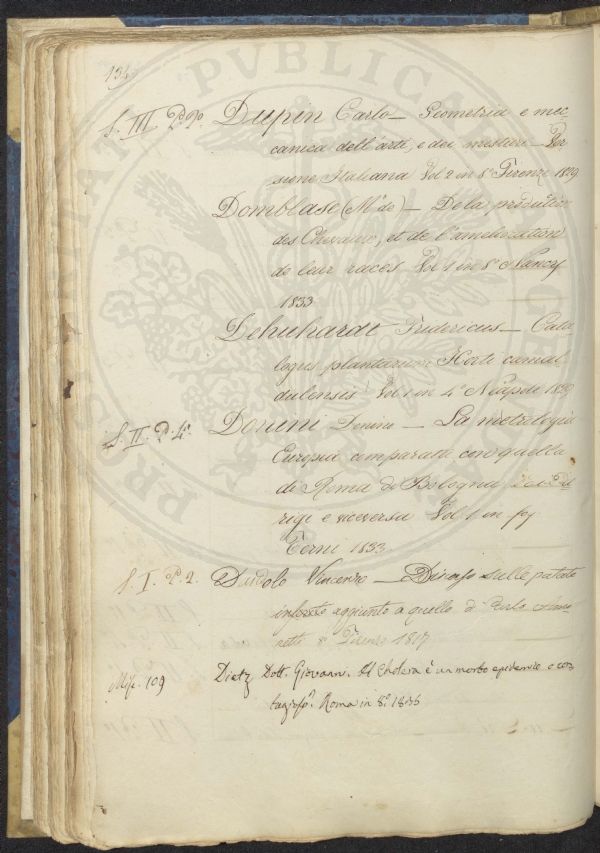 134
S. III P.
Dupin Carlo — Geometria e mec
canica dell'arti, e dei mestieri — Ver
sione Italiana Vol 2 in 8° Firenze 1829
Domblase (Mr de) — De la production
des Chevaux, et de l'amelioration
de leur races Vol 1 in 8° Nancy
1833
Dehnhardt Fridericus — Cata
logus plantarum Horti camal
dulensis Vol 1 in 4° Napoli 1829
S. II. P. 4°.
Dorini — La metrologia
Europea comparata con quella
di Roma di Bologna
e viceversa Vol 1 in fog
Terni 1833
S. I. P. 2.
Dandolo Vincenzo — sulle patate
aggiunto a quello di Carlo Amo
retti 8° Firenze 1817
Misc. 109
Dietz Dott. Giovanni. Il Cholera è un morbo epidemico e con
tagioso. Roma in 8° 1836
PUBLICAE